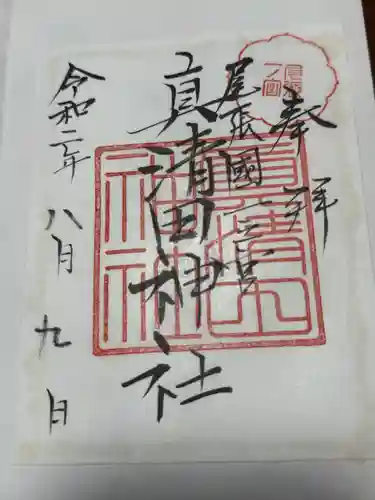 奉拝
尾張國一之宮
真清田神社
令和二年八月九日
尾張
一ノ宮
真清田
神社